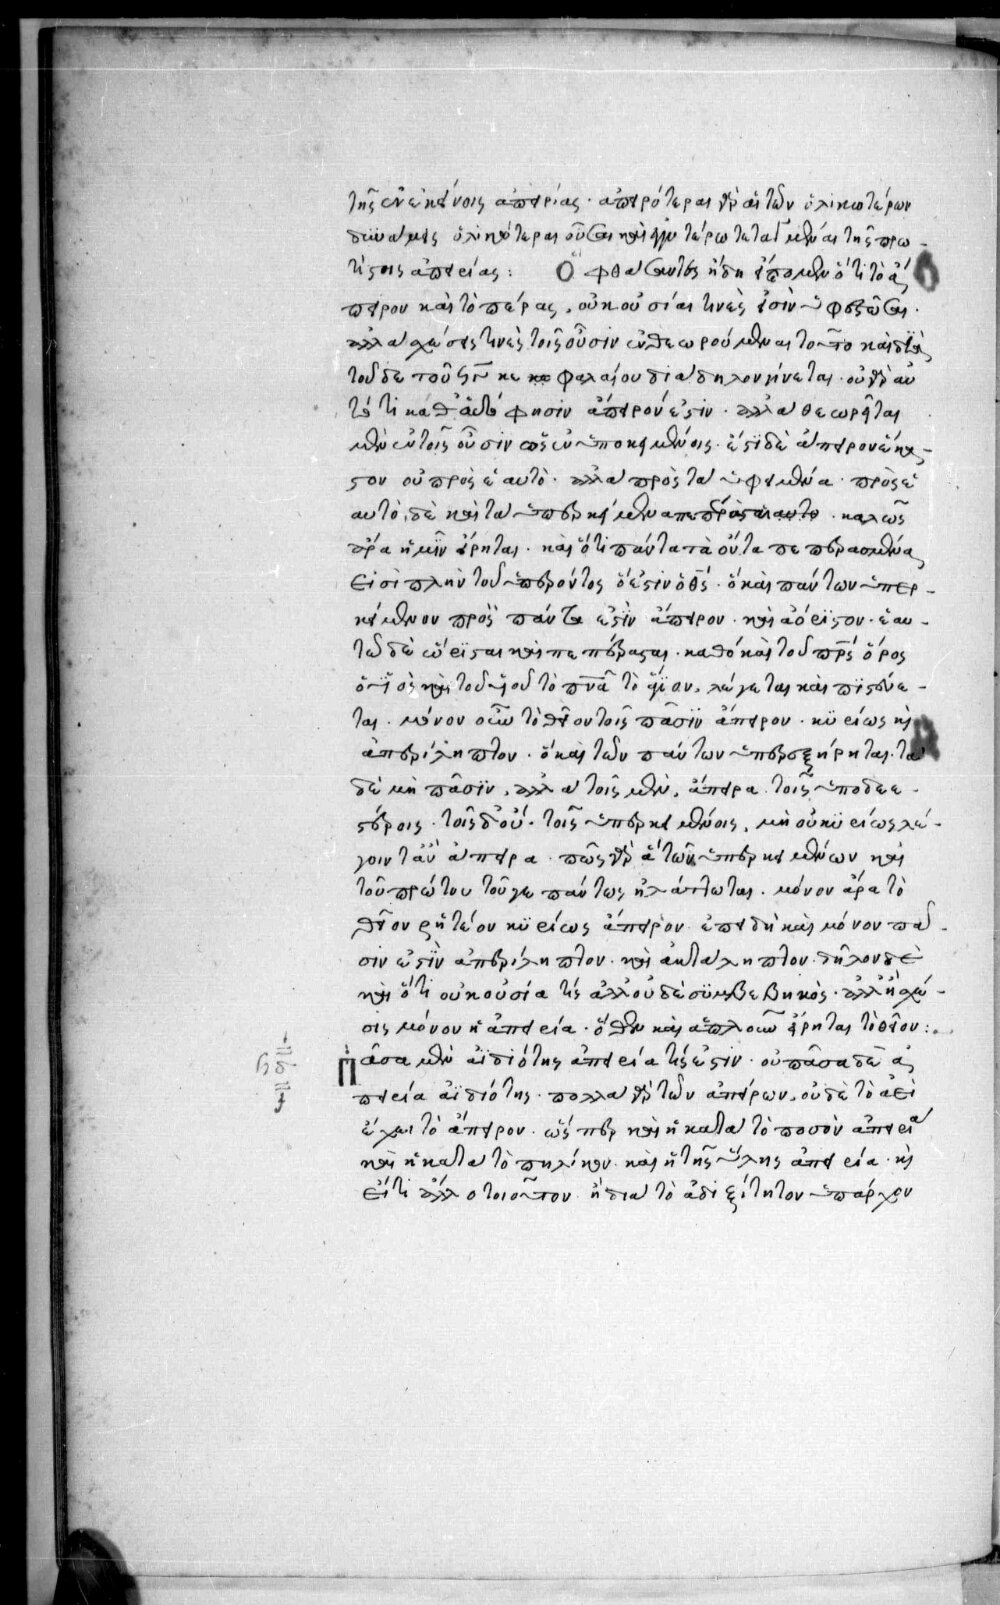 τῆς ἐν ἐκείνοις ἀπειρίας · ἀπειρότεραι γὰρ αἱ τῶν ὁλικωτέρων
δυνάμεις ὁλικώτεραι οὖσαι καὶ ἐγγυτέρω τεταγμέναι τῆς πρω-
τίστης ἀπειρίας : Ὃ φθάσαντες ἤδη εἴπομεν ὅτι τὸ ἄ-
πειρον καὶ τὸ πέρας, οὐκ οὐσίαι τινές εἰσιν ὑφεστῶσαι ·
ἀλλὰ σχέσεις τινὲς τοῖς οὖσιν ἐνθεωρούμεναι τοῦτο καὶ διὰ
τοῦδε τοῦ κεφαλαίου διάδηλον γίνεται · οὐ γὰρ αὐ
τό τι καθ' αὑτό φησιν ἄπειρόν ἐστιν · ἀλλὰ θεωρεῖται
μὲν ἐν τοῖς οὖσιν ὡς ἐν ὑποκειμένοις · ἔστι δὲ ἄπειρον ἕκα-
στον οὐ πρὸς ἑαυτὸ · ἀλλὰ πρὸς τὰ ὑφειμένα · πρὸς ἑ
αυτὸ δὲ καὶ τὰ ὑπερκείμενα πεπέρασται · καλῶς
ἄρα ἡμῖν εἴρηται · καὶ ὅτι πάντα τὰ ὄντα πεπερασμένα
εἰσὶ πλὴν τοῦ ὑπερόντος ὅ ἐστιν ὁ θεός · ὃ καὶ πάντων ὑπερ-
κείμενον πρὸς πάντα ἐστὶν ἄπειρον · καὶ ἀόριστον · ἑαυ-
τῷ δὲ ὥρισται καὶ πεπέρασται · καθὸ καὶ τοῦ πατρός ὅρος
ὁ υἱός καὶ τοῦ υἱοῦ τὸ πνεῦμα τὸ ἅγιον, λέγεται καὶ πιστεύε-
ται · μόνον οὖν τὸ θεῖον τοῖς πᾶσιν ἄπειρον · κυρίως καὶ
ἀπερίληπτον · ὃ καὶ τῶν πάντων ὑπερεξῄρηται · τὰ
δὲ μὴ πᾶσιν, ἀλλὰ τοῖς μὲν, ἄπειρα τοῖς ὑποδεε-
στέροις · τοῖς δ' οὔ · τοῖς ὑπερκειμένοις, μὴ οὐ κυρίως λέ-
γοιντ' ἂν ἄπειρα · πῶς γὰρ ἃ τῶν ὑπερκειμένων καὶ
τοῦ πρώτου τοῦ γε πάντως ἠλάττωται · μόνον ἄρα τὸ
θεῖον ῥητέον κυρίως ἄπειρον ἐπειδὴ καὶ μόνον πᾶ-
σιν ἐστὶν ἀπερίληπτον · καὶ ἀκατάληπτον · δῆλον δὲ
καὶ ὅτι οὐκ οὐσία τίς ἀλλ' οὐδὲ συμβεβηκὸς · ἀλλ' ἢ σχέ-
σις μόνον ἡ ἀπειρία · ὅθεν καὶ ἁπλοῦν εἴρηται τὸ θεῖον :
Πᾶσα μὲν ἀϊδιότης ἀπειρία τίς ἐστιν · οὐ πᾶσα δὲ ἀ-
πειρία ἀϊδιότης · πολλὰ γὰρ τῶν ἀπείρων, οὐδὲ τὸ ἀεὶ
ἔχει τὸ ἄπειρον · ὥσπερ καὶ ἡ κατὰ τὸ ποσὸν ἀπειρία
καὶ ἡ κατὰ τὸ πηλίκον · καὶ ἡ τῆς ὕλης ἀπειρία · καὶ
εἴ τι ἄλλο τοιοῦτον ἢ διὰ τὸ ἀδιεξίτητον ὑπάρχον